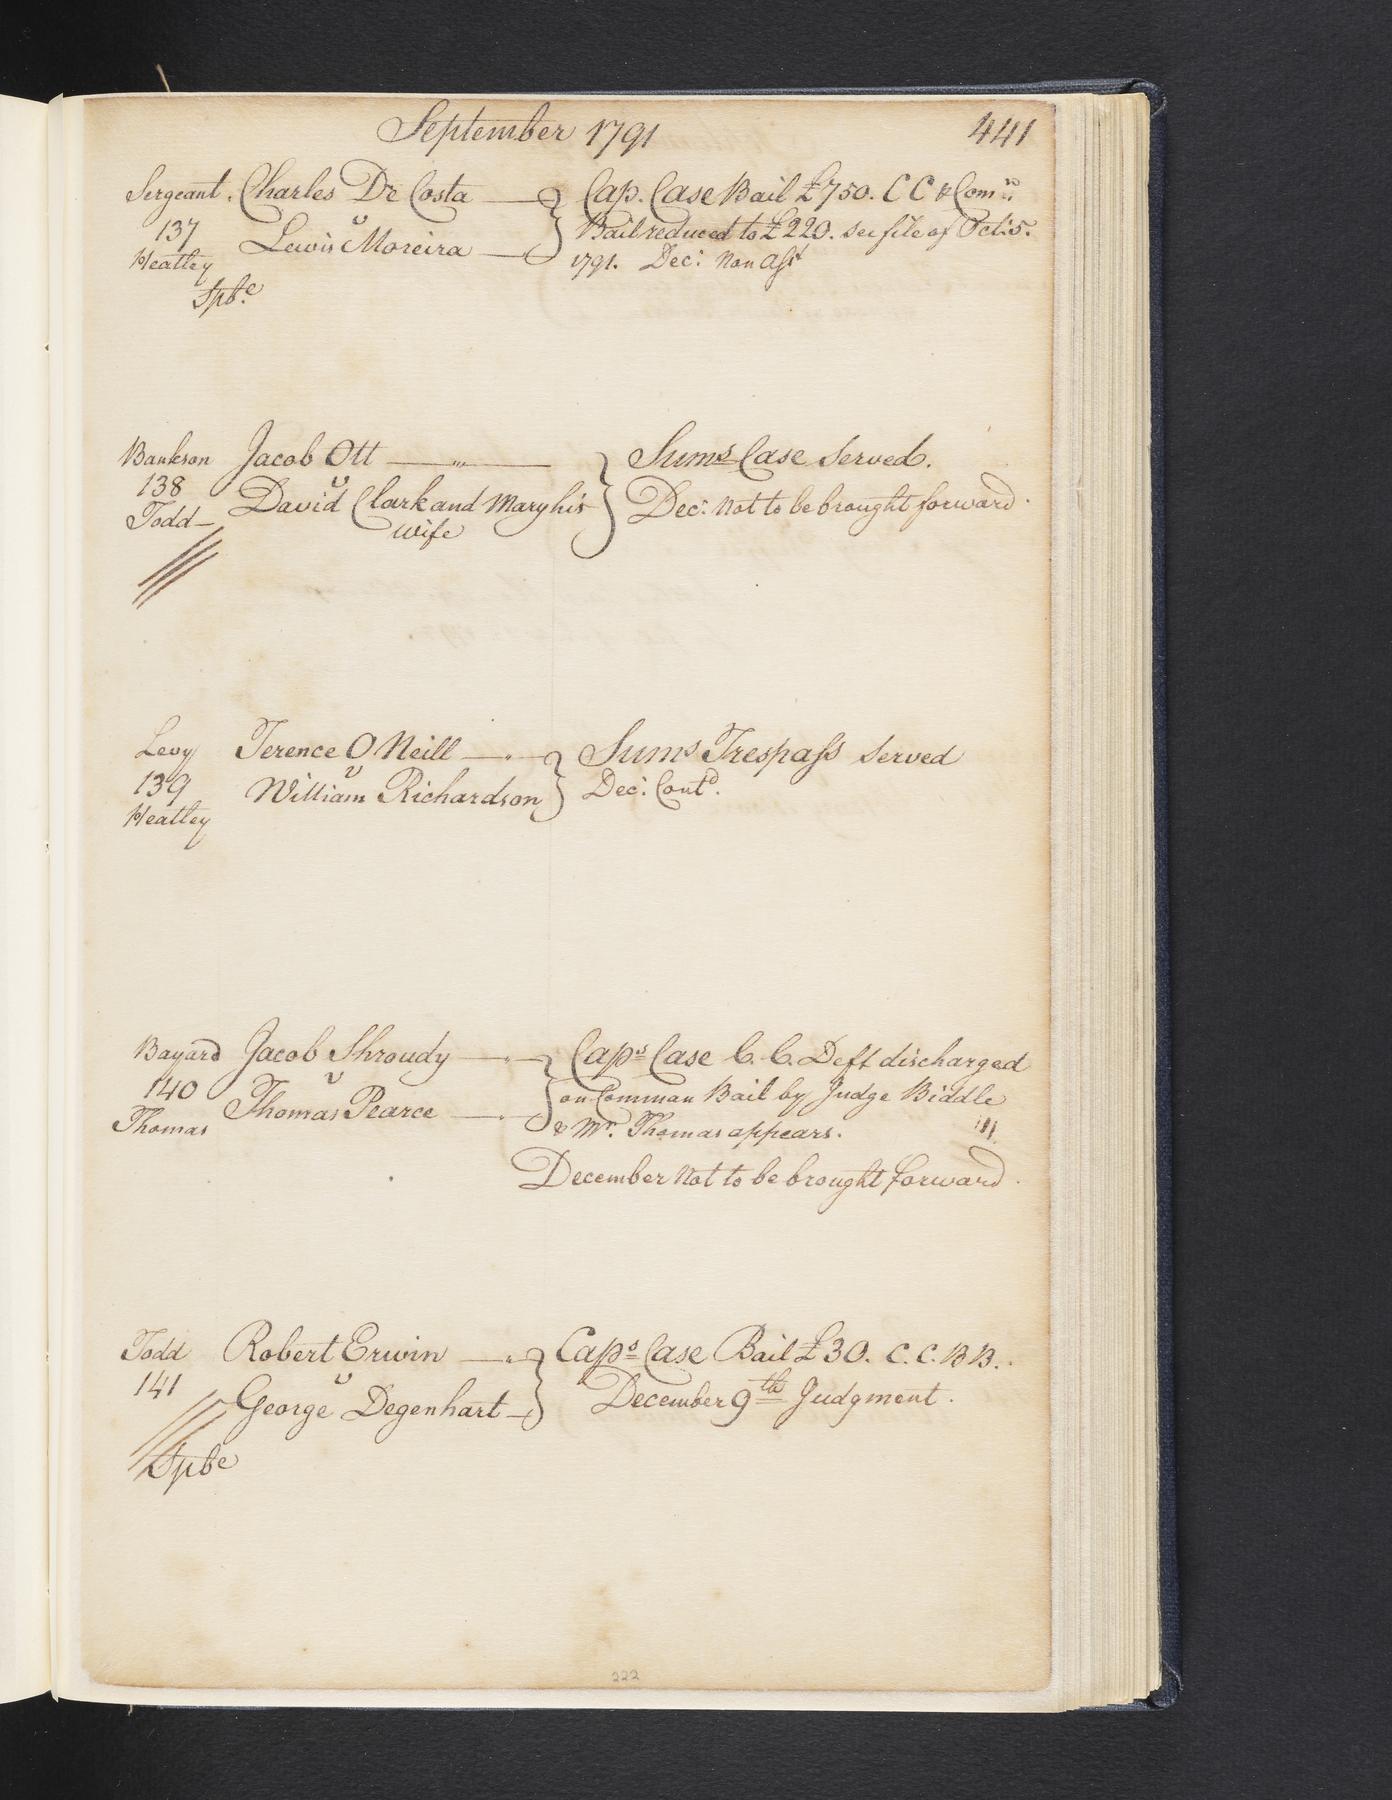 September 1791 441
Sergeant. Charles De Costa Cap. Case Bail £750. C C & Com.d
v
137 Lewis Moreira Bail reduced to £220. see file of Oct: 5.
Heatley 1791. Dec: Non Asst
Spb.e
Bankson Jacob Ott Sums Case Served.
v
138 David Clark and Mary his Dec: Not to be brought forward.
Todd wife
Levy Terence O Neill Sums Trespass Served
v
139 William Richardson Dec: Contd.
Heatley
Bayard Jacob Shroudy Caps Case C. C. Deft discharged
v
140 Thomas Pearce on Common Bail by Judge Biddle
Thomas & Mr. Thomas appears.
December Not to be brought forward.
Todd Robert Erwin Caps Case Bail £30. C. C. B B.
v
141 George Degenhart December 9th Judgment.
Spbe
222